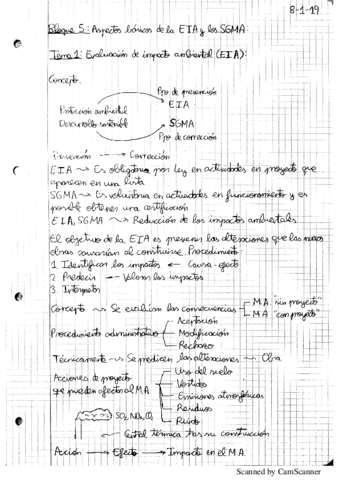 8-1-19
Bloque 5: Aspectos básicos de la EIA y los SGMA:
Tema 1: Evaluación de impacto ambiental (EIA):
Concepto.
Pro de prevención
Protección ambiental EIA
Desarrollo sostenible SGMA
Pro de corrección
Prevención ---→ Corrección
EIA ~> Es obligatoria por ley en actividades en proyecto que
aparecen en una lista
SGMA ~> Es voluntaria en actividades en funcionamiento y es
posible obtener una certificación
EIA, SGMA ~> Reducción de los impactos ambientales
El objetivo de la EIA es prevenir las alteraciones que las nuevas
obras causarían al construirse. Procedimiento:
1 Identificar los impactos ← Causa-efecto
2 Predecir - Valorar los impactos
3 Interpretar
Concepto ~> Se evalúan las consecuencias M.A "sin proyecto"
M.A "con proyecto"
Aceptación
Procedimiento administrativo Modificación
Rechazo
Técnicamente ~> Se predicen las alteraciones ~> Obra
Acciones de proyecto Uso del suelo
que pueden afectar al M.A Vertidos
Emisiones atmosféricas
Residuos
Ruido
SO₂, NOₓ, CO₂
Central térmica tras su construcción
Acción → Efecto → Impacto en el M.A.
Scanned by CamScanner